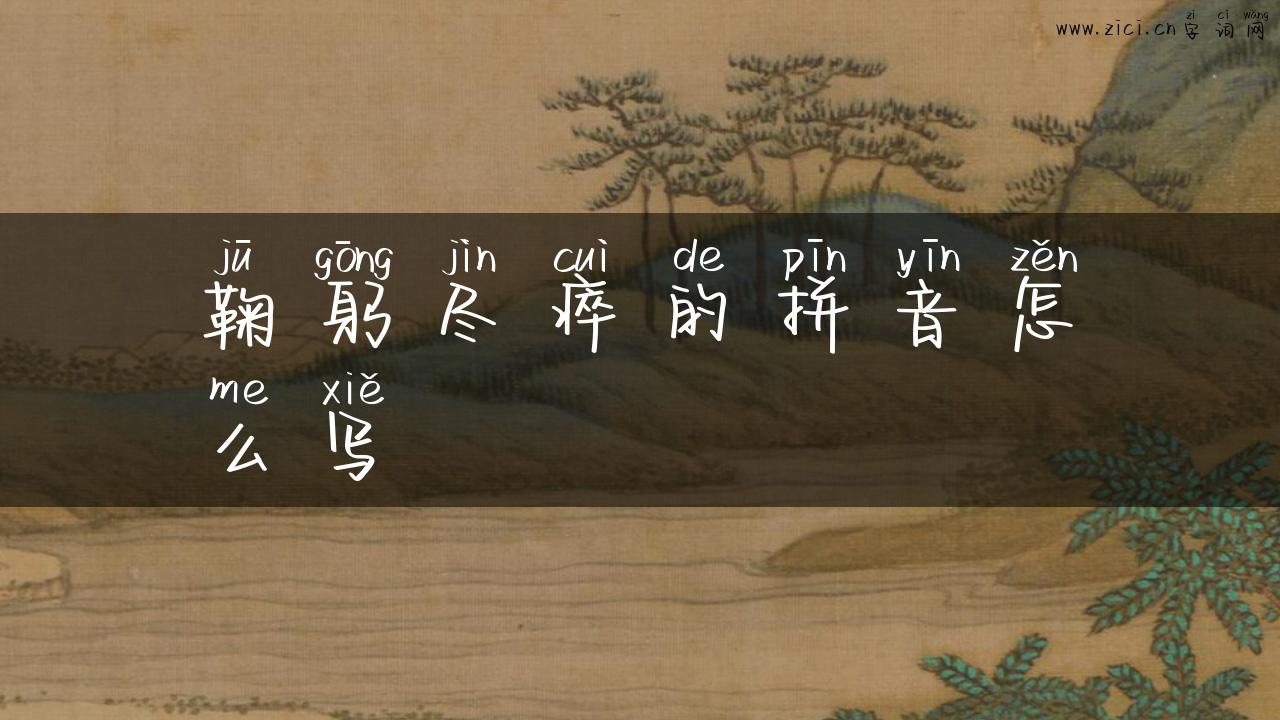 zì cí wǎng
www.zici.cn 字 词 网
jū gōng jìn cuì de pīn yīn zěn
鞠 躬 尽 瘁 的 拼 音 怎
me xiě
么 写